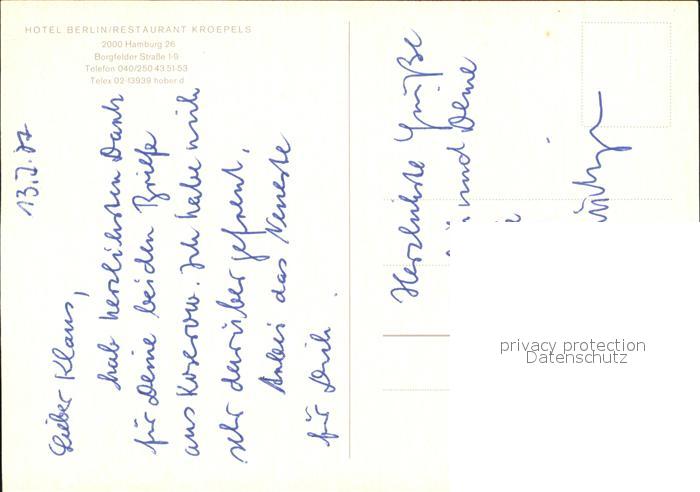 HOTEL BERLIN/RESTAURANT KROEPELS
2000 Hamburg 26
Borgfelder Straße 1-9
Telefon 040/250 43 51-53
Telex 02-13939 hober d
Lieber Klaus,
hab herzlichsten Dank
für Deine beiden Briefe
aus Koserow. Ich habe mich
sehr darüber gefreut.
Anbei das Neueste
für Dich.
Herzlichste Grüße
und Deine
privacy protection
Datenschutz